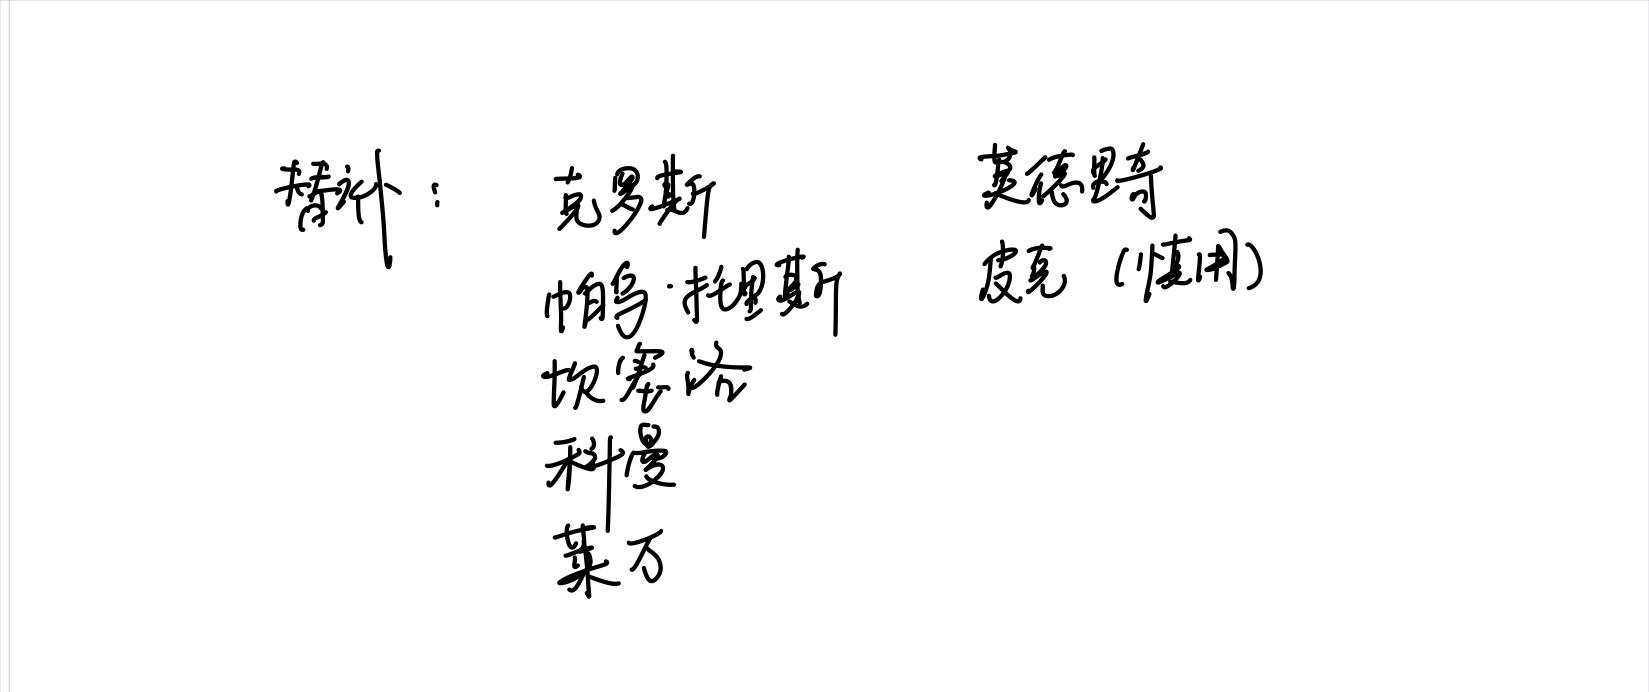 替补：
克罗斯
帕乌·托里斯
坎塞洛
科曼
莱万
莫德里奇
皮克（慎用）